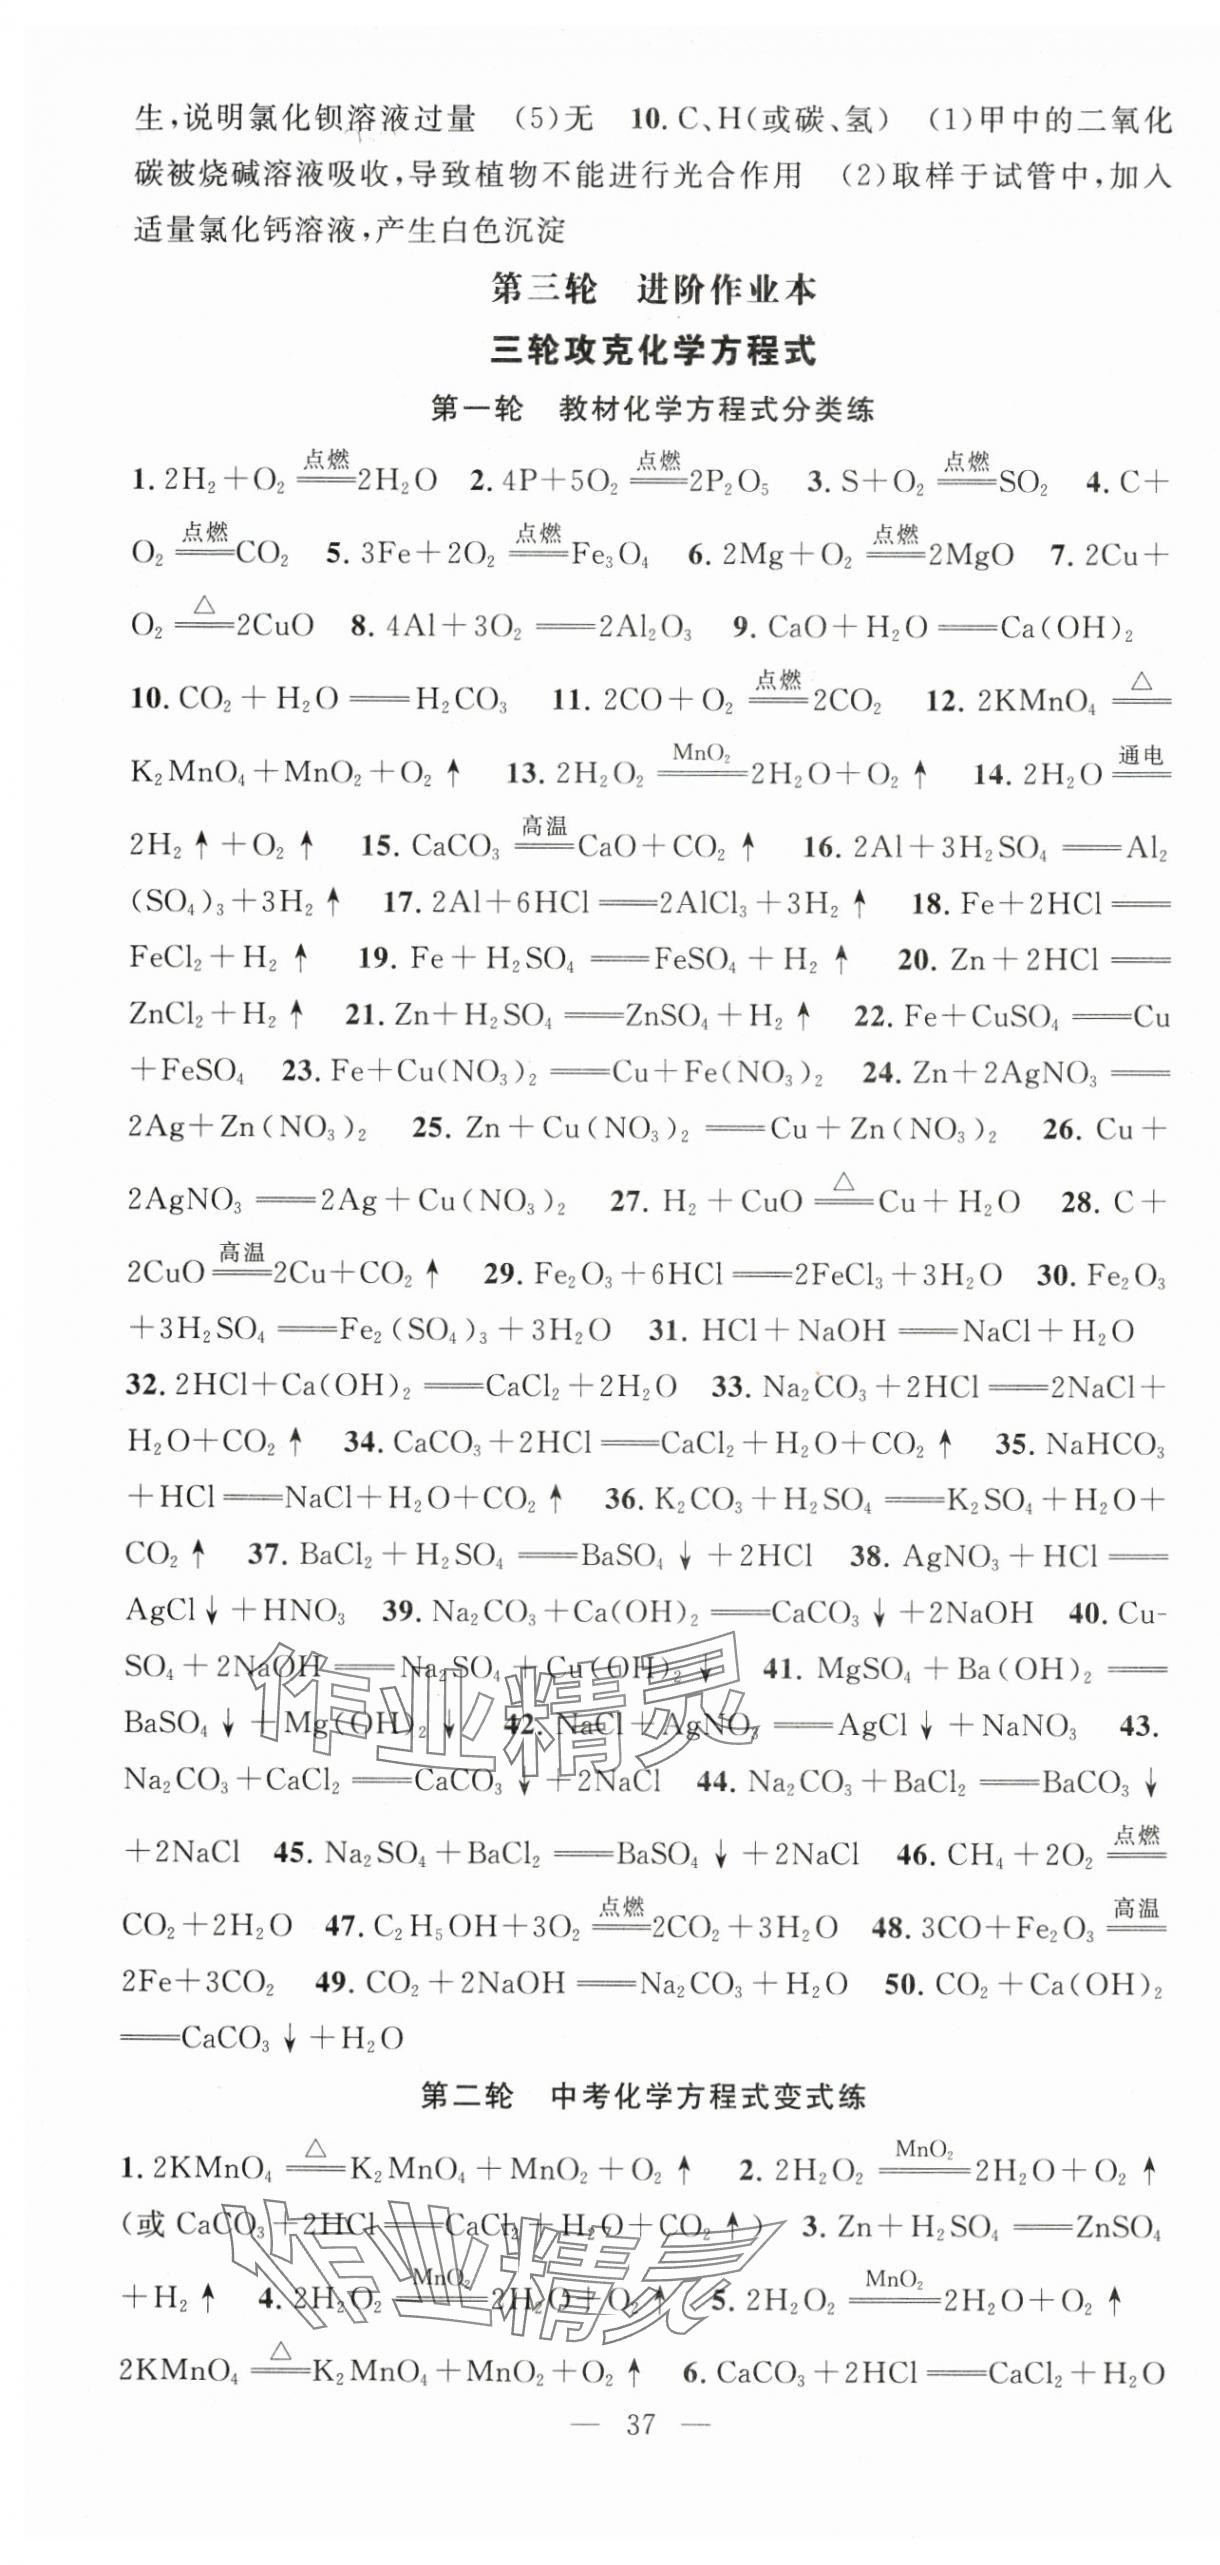 生,说明氯化钡溶液过量 (5)无 10.C、H(或碳、氢) (1)甲中的二氧化
碳被烧碱溶液吸收,导致植物不能进行光合作用 (2)取样于试管中,加入
适量氯化钙溶液,产生白色沉淀
第三轮 进阶作业本
三轮攻克化学方程式
第一轮 教材化学方程式分类练
1.2H₂+O₂ =点燃= 2H₂O 2.4P+5O₂ =点燃= 2P₂O₅ 3.S+O₂ =点燃= SO₂ 4.C+
O₂ =点燃= CO₂ 5.3Fe+2O₂ =点燃= Fe₃O₄ 6.2Mg+O₂ =点燃= 2MgO 7.2Cu+
O₂ =△= 2CuO 8.4Al+3O₂ == 2Al₂O₃ 9.CaO+H₂O == Ca(OH)₂
10.CO₂+H₂O == H₂CO₃ 11.2CO+O₂ =点燃= 2CO₂ 12.2KMnO₄ =△=
K₂MnO₄+MnO₂+O₂↑ 13.2H₂O₂ =MnO₂= 2H₂O+O₂↑ 14.2H₂O =通电=
2H₂↑+O₂↑ 15.CaCO₃ =高温= CaO+CO₂↑ 16.2Al+3H₂SO₄ == Al₂
(SO₄)₃+3H₂↑ 17.2Al+6HCl == 2AlCl₃+3H₂↑ 18.Fe+2HCl ==
FeCl₂+H₂↑ 19.Fe+H₂SO₄ == FeSO₄+H₂↑ 20.Zn+2HCl ==
ZnCl₂+H₂↑ 21.Zn+H₂SO₄ == ZnSO₄+H₂↑ 22.Fe+CuSO₄ == Cu
+FeSO₄ 23.Fe+Cu(NO₃)₂ == Cu+Fe(NO₃)₂ 24.Zn+2AgNO₃ ==
2Ag+Zn(NO₃)₂ 25.Zn+Cu(NO₃)₂ == Cu+Zn(NO₃)₂ 26.Cu+
2AgNO₃ == 2Ag+Cu(NO₃)₂ 27.H₂+CuO =△= Cu+H₂O 28.C+
2CuO =高温= 2Cu+CO₂↑ 29.Fe₂O₃+6HCl == 2FeCl₃+3H₂O 30.Fe₂O₃
+3H₂SO₄ == Fe₂(SO₄)₃+3H₂O 31.HCl+NaOH == NaCl+H₂O
32.2HCl+Ca(OH)₂ == CaCl₂+2H₂O 33.Na₂CO₃+2HCl == 2NaCl+
H₂O+CO₂↑ 34.CaCO₃+2HCl == CaCl₂+H₂O+CO₂↑ 35.NaHCO₃
+HCl == NaCl+H₂O+CO₂↑ 36.K₂CO₃+H₂SO₄ == K₂SO₄+H₂O+
CO₂↑ 37.BaCl₂+H₂SO₄ == BaSO₄↓+2HCl 38.AgNO₃+HCl ==
AgCl↓+HNO₃ 39.Na₂CO₃+Ca(OH)₂ == CaCO₃↓+2NaOH 40.Cu-
SO₄+2NaOH == Na₂SO₄+Cu(OH)₂↓ 41.MgSO₄+Ba(OH)₂ ==
BaSO₄↓+Mg(OH)₂↓ 42.NaCl+AgNO₃ == AgCl↓+NaNO₃ 43.
Na₂CO₃+CaCl₂ == CaCO₃↓+2NaCl 44.Na₂CO₃+BaCl₂ == BaCO₃↓
+2NaCl 45.Na₂SO₄+BaCl₂ == BaSO₄↓+2NaCl 46.CH₄+2O₂ =点燃=
CO₂+2H₂O 47.C₂H₅OH+3O₂ =点燃= 2CO₂+3H₂O 48.3CO+Fe₂O₃ =高温=
2Fe+3CO₂ 49.CO₂+2NaOH == Na₂CO₃+H₂O 50.CO₂+Ca(OH)₂
== CaCO₃↓+H₂O
作业精灵
第二轮 中考化学方程式变式练
1.2KMnO₄ =△= K₂MnO₄+MnO₂+O₂↑ 2.2H₂O₂ =MnO₂= 2H₂O+O₂↑
(或 CaCO₃+2HCl == CaCl₂+H₂O+CO₂↑) 3.Zn+H₂SO₄ == ZnSO₄
+H₂↑ 4.2H₂O₂ =MnO₂= 2H₂O+O₂↑ 5.2H₂O₂ =MnO₂= 2H₂O+O₂↑
2KMnO₄ =△= K₂MnO₄+MnO₂+O₂↑ 6.CaCO₃+2HCl == CaCl₂+H₂O
作业精灵
— 37 —